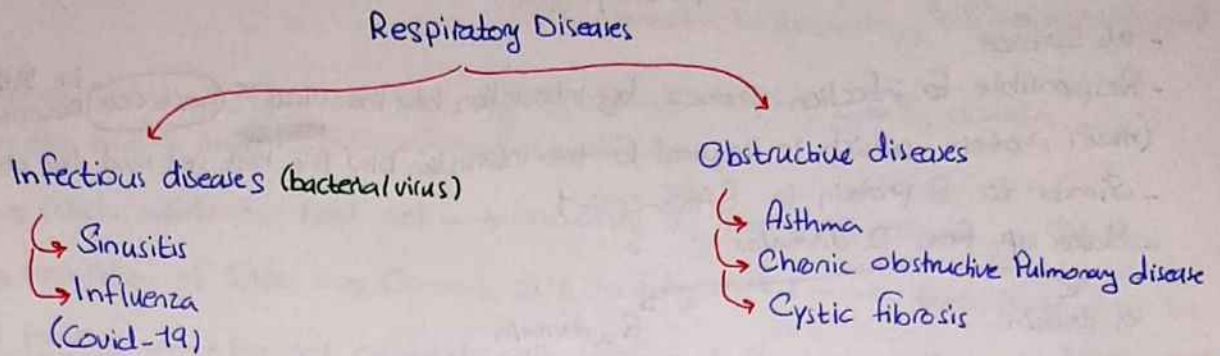 Respiratory Diseases
Infectious diseases (bacterial/virus)
Sinusitis
Influenza
(Covid-19)
Obstructive diseases
Asthma
Chronic obstructive Pulmonary disease
Cystic fibrosis